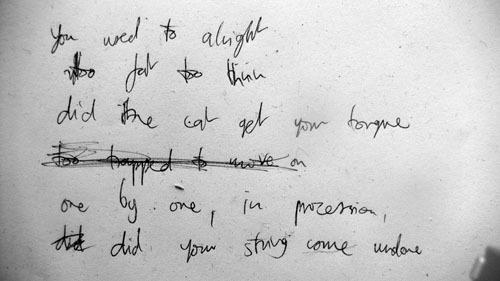 You used to alright
too fat too thin
did the cat get your tongue
too trapped to move on
one by one, in procession,
did did your string come undone